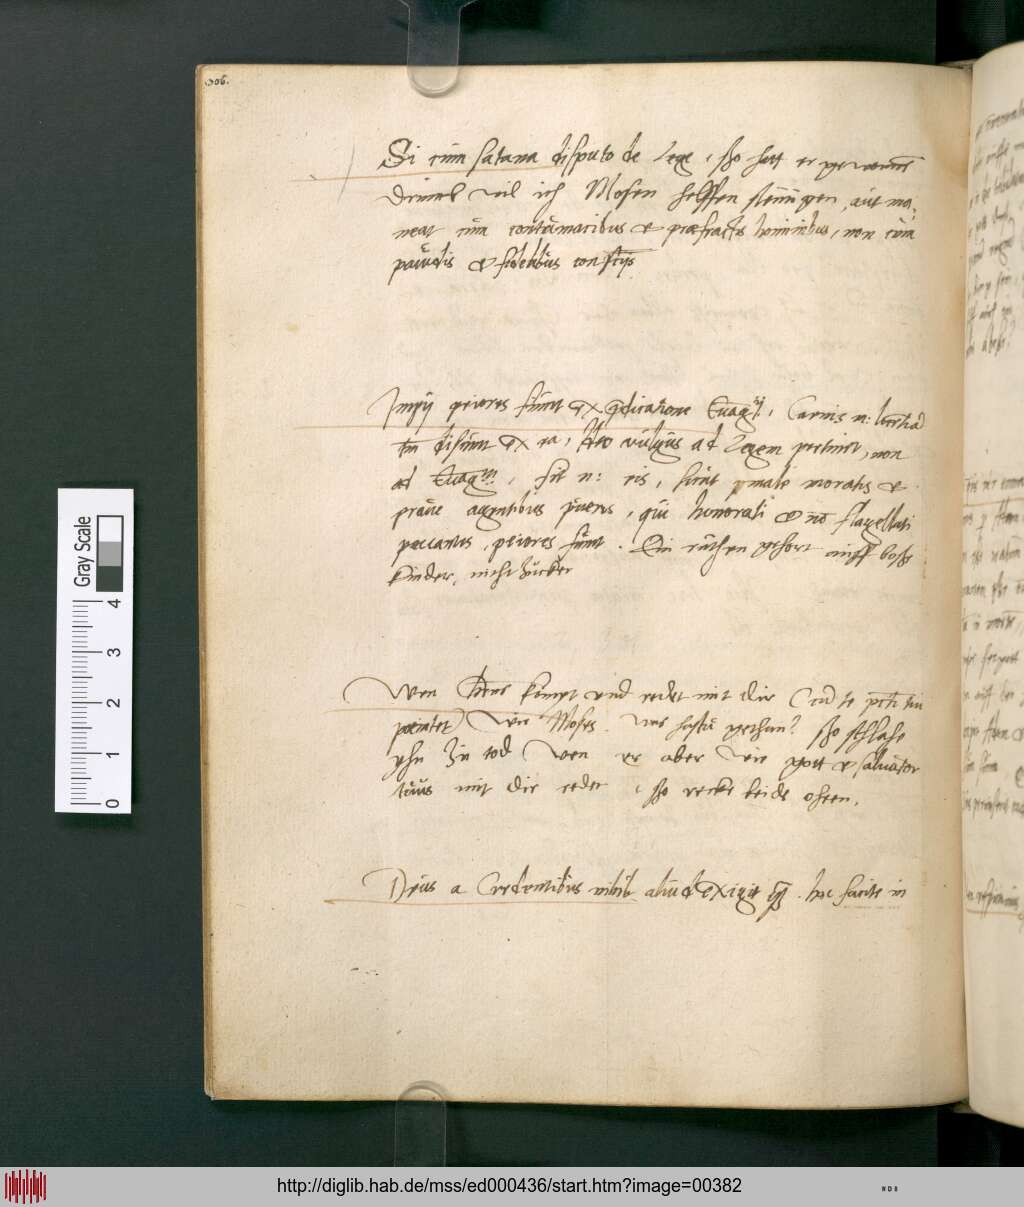 306.
Si cum satana disputo de Lege, sho hatt er gewonnē
Drumb wil ich Mosen helffen steinigen, aut ma,
neat cum contumacibus et præfractis hominibus, non cum
pavidis et fidelibus conscijs.
Impij peiores sunt ex p̄dicatione Euagelij, Carnis n: libertatē
tm̄ discunt ex ea, Ideo vulgus ad Legem pertinet, non
ad Euagm, sit n: eis, sicut male moratis et
prave agentibus pueris, qui honorati et nō flagellati
peccantes, peiores sunt. Ein ruthen gehort auff boshe
kinder, nicht zucker
Wen kömpt und redet mit dir
Wie Moses. was hastu gethan? sho schlahe
yhn zu tod Wen er aber wie gott et salvator
tuus mit dir redet, sho recke beide ohren.
Deus a Credentibus nihil aliud exigit q̄ . hoc facite in
Gray Scale
4
3
2
1
0
http://diglib.hab.de/mss/ed000436/start.htm?image=00382